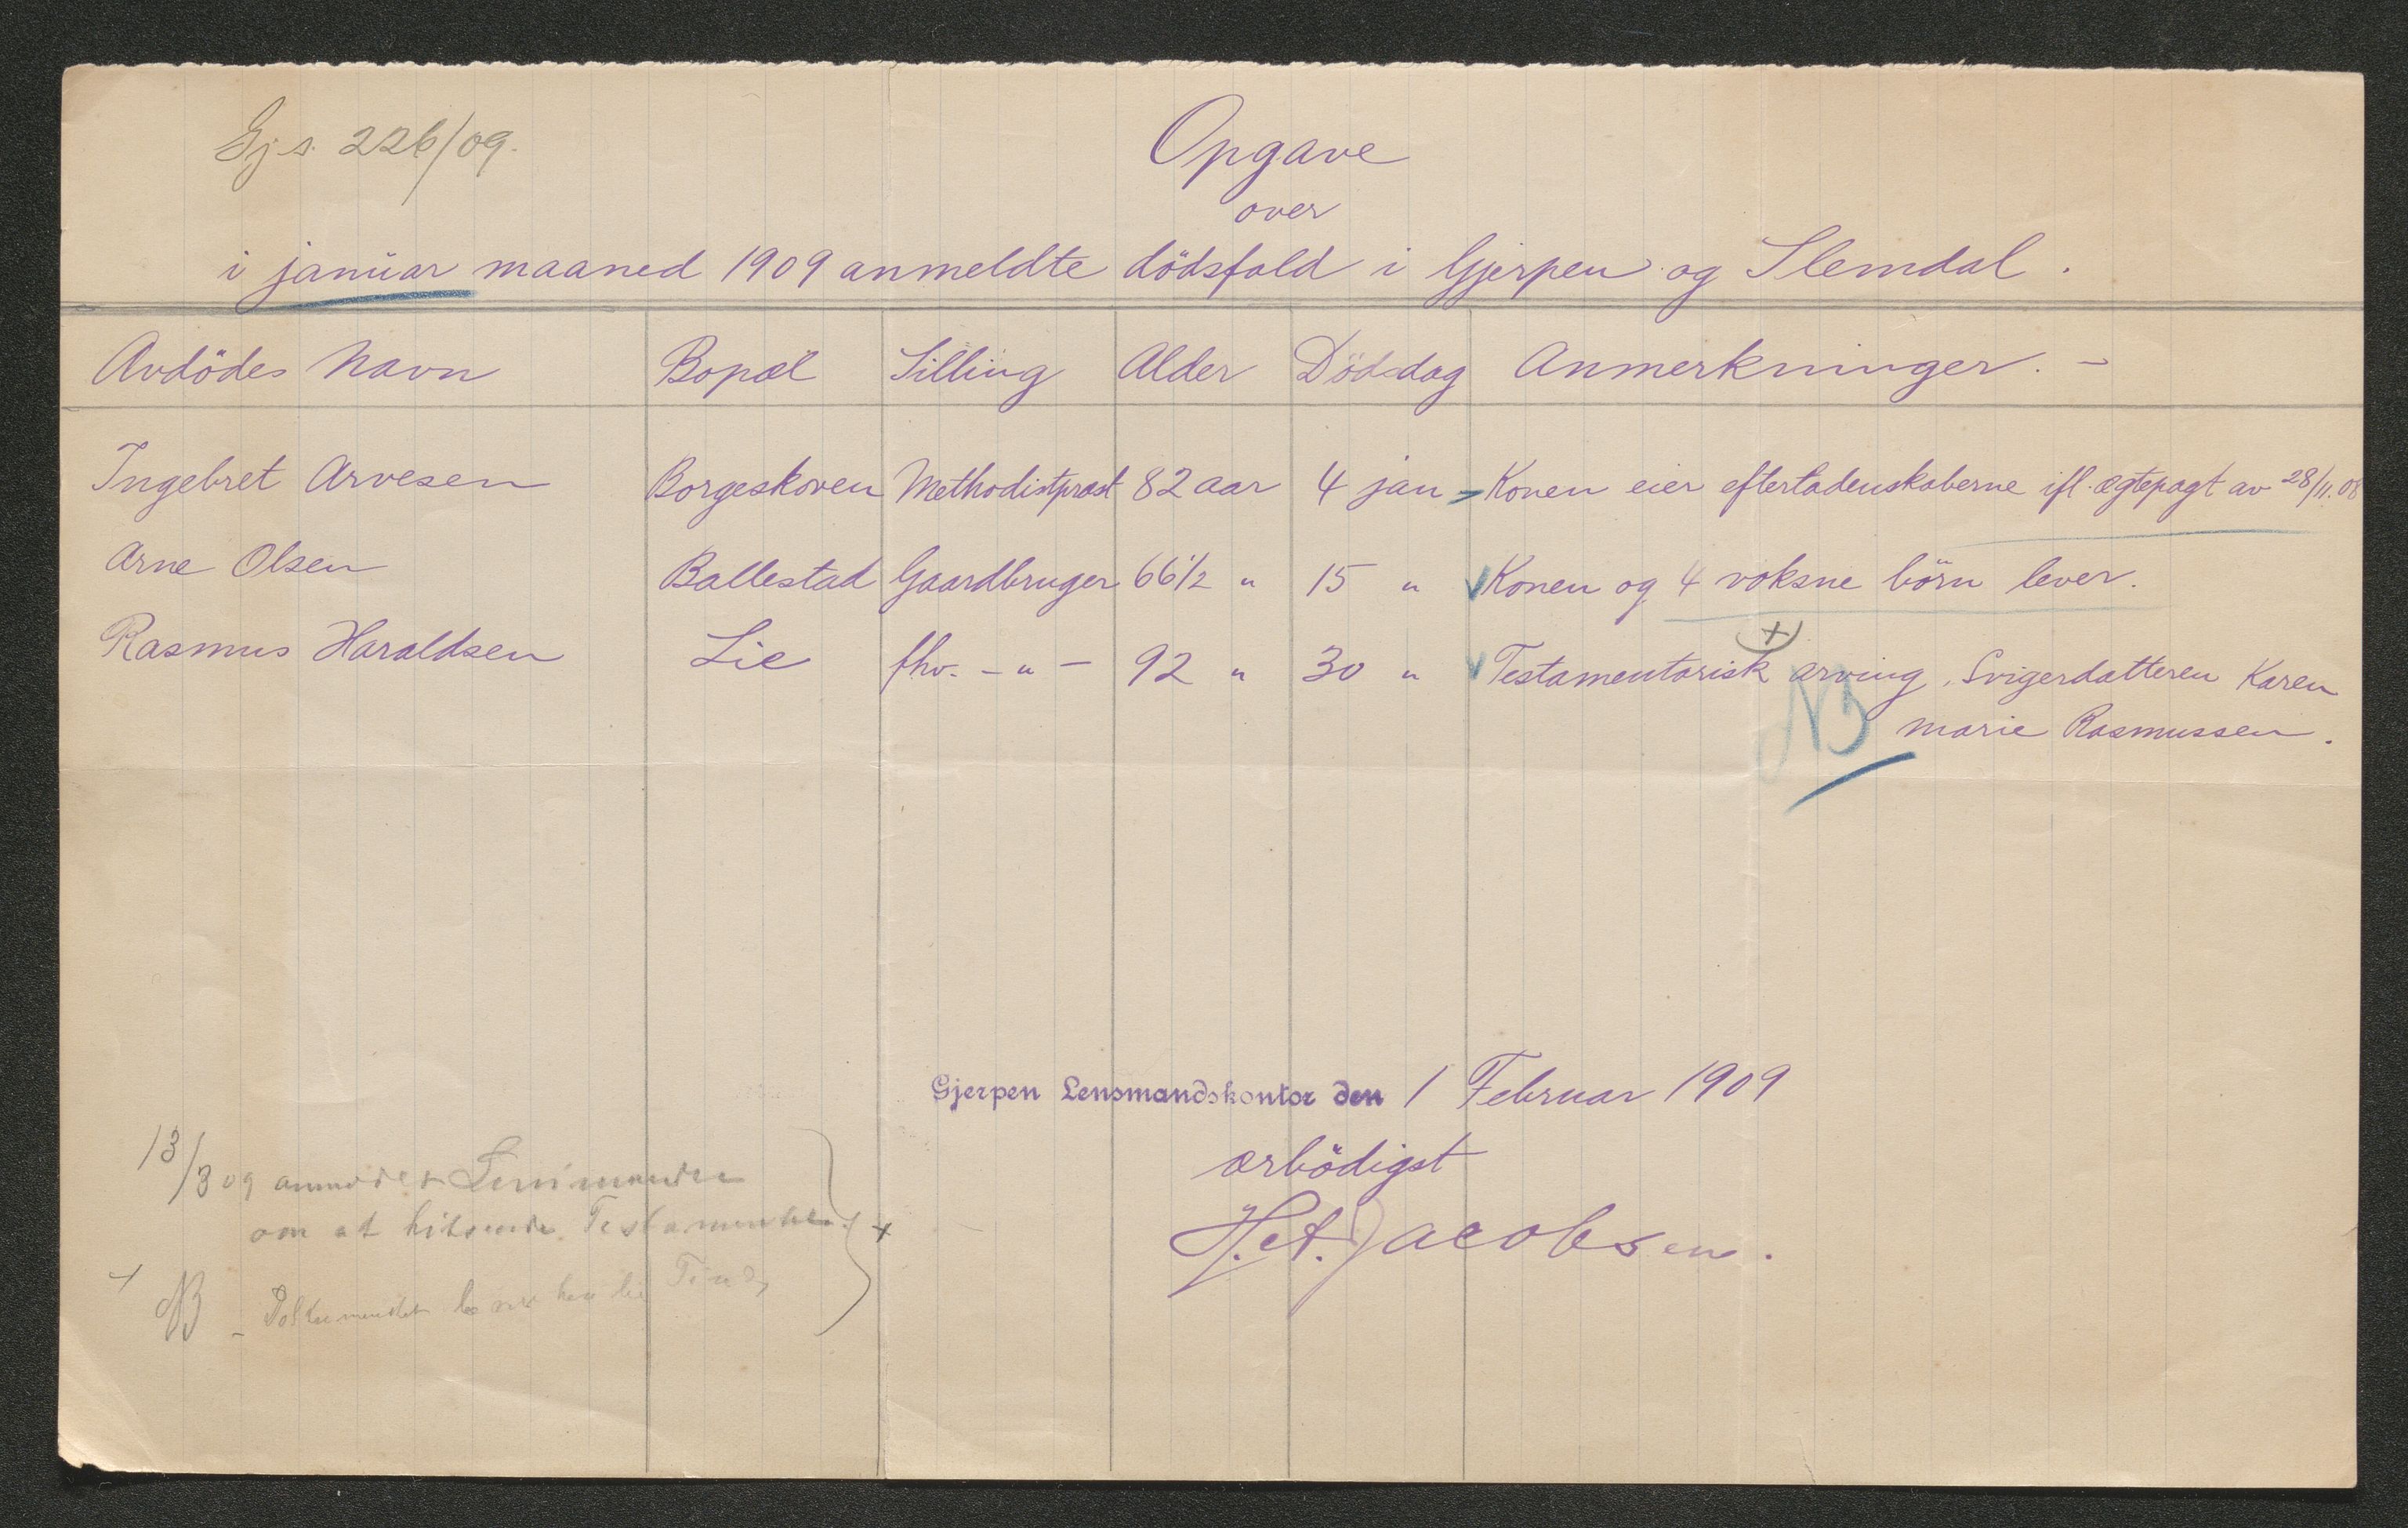 Gjs. 226/09.
Opgave
over
i januar maaned 1909 anmeldte dödsfald i Gjerpen og Slemdal.
Avdödes Navn Bopæl Stilling Alder Dödsdag Anmerkninger. -
Ingebret Arvesen Borgeskoven Methodistpræst 82 aar 4 jan Konen eier efterladenskaberne ifl. ægtepagt av 28/11.08
Arne Olsen Ballestad Gaardbruger 66 1/2 " 15 " Konen og 4 voksne börn lever.
Rasmus Haraldsen Lie fhv. - " - 92 " 30 " Testamentarisk arving, Svigerdatteren Karen
+
NB Marie Rasmussen.
Gjerpen Lensmandskontor den 1 Februar 1909
ærbödigst
H. A. Jacobsen.
13/3 09 anmodet Lensmanden
om at hitsende Testamentet. +
NB - Testamentet